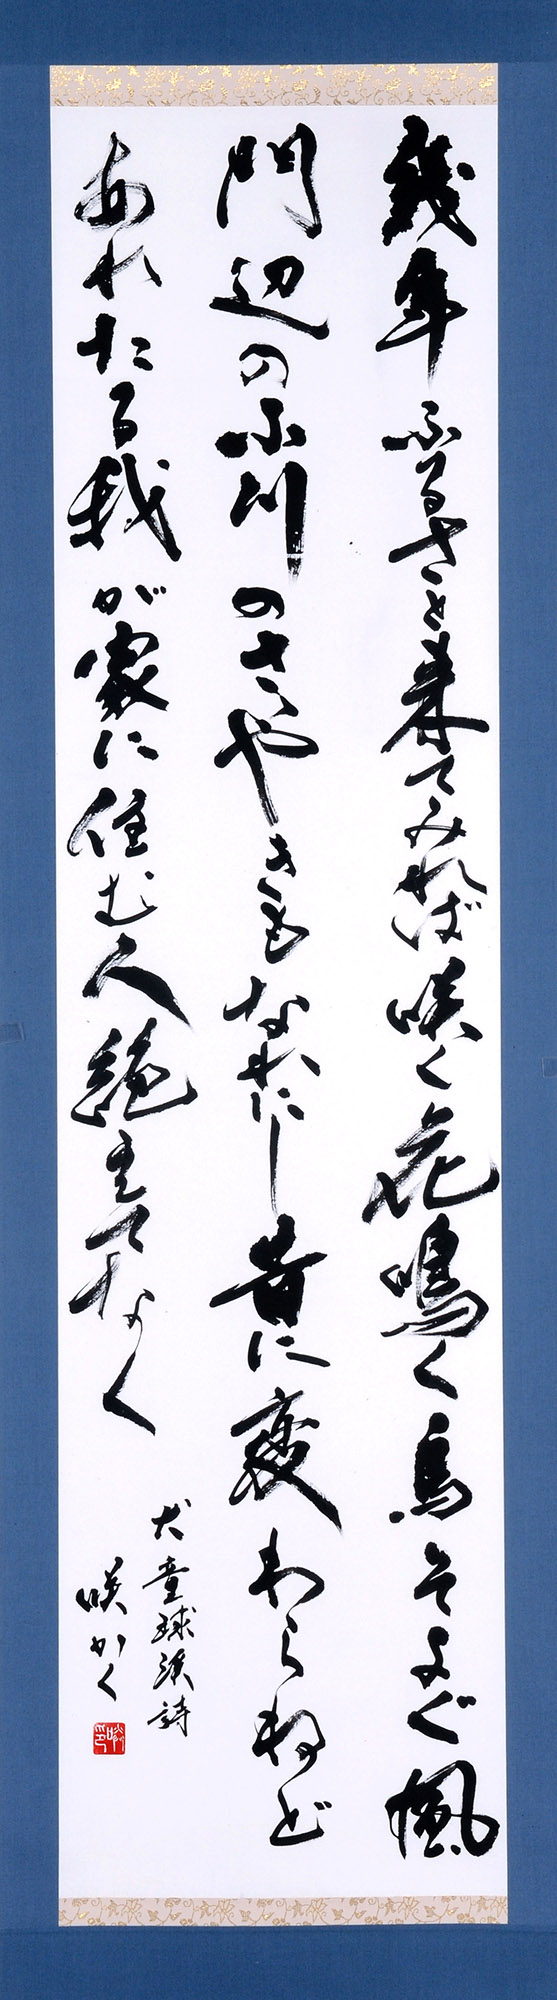 幾年ふるさと来てみれば咲く花鳴く鳥そよぐ風
門辺の小川のささやきもなれにし昔に変わらねど
あれたる我が家に住む人絶えてなく
犬童球渓詩
咲かく